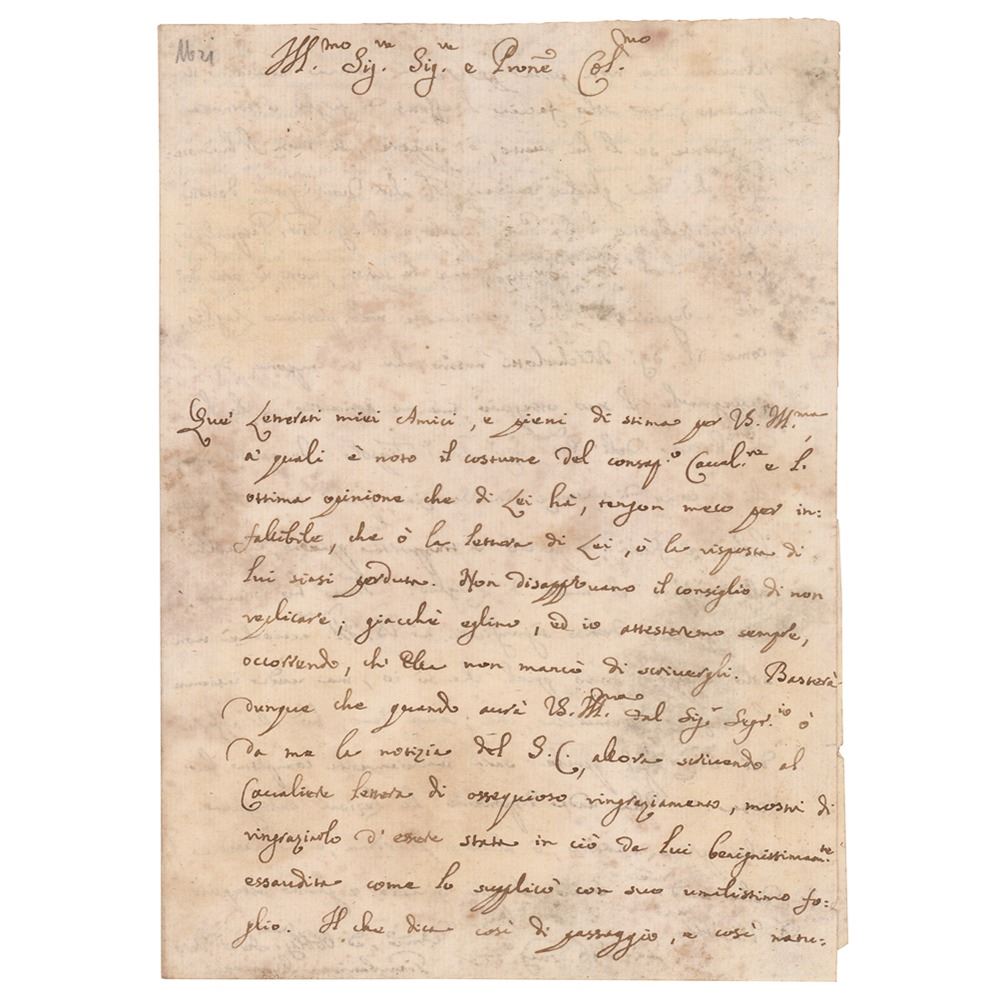 Ill.mo Sig.re Sig.re e Pron̄e Col.mo
Que' Letterati miei Amici, e pieni di stima per V.S. Ill.ma,
a' quali è noto il costume del consap.o Caval.re e l'
ottima opinione che di Lei hà, tengon meco per in:
fallibile, che ò la lettera di Lei, ò la risposta di
lui siasi perduta. Non disapprovano il consiglio di non
replicare; giacchè eglino, ed io attesteremo sempre,
occorrendo, ch' Ella non mancò di scrivergli. Basterà
dunque che quando avrà V.S. Ill.ma dal Sig.r Segr.io ò
da me la notizia del S.C., allora scrivendo al
Cavaliere lettera di ossequioso ringraziamento, mostri di
ringraziarlo d' essere stata in ciò da lui benignissimam.te
essaudita come lo supplicò con suo umilissimo fo:
glio. Il che dica così di passaggio, e così natu: